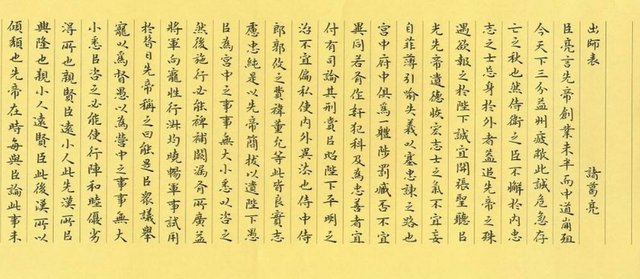 出師表
諸葛亮
臣亮言先帝創業未半而中道崩殂
今天下三分益州疲敝此誠危急存
亡之秋也然侍衛之臣不懈於內忠
志之士忘身於外者蓋追先帝之殊
遇欲報之於陛下誠宜開張聖聽㠯
光先帝遺德恢宏志士之氣不宜妄
自菲薄引喻失義以塞忠諫之路也
宮中府中俱為一體陟罰臧否不宜
異同若有作奸犯科及為忠善者宜
付有司論其刑賞㠯昭陛下平明之
治不宜偏私使內外異法也侍中侍
郎郭攸之費禕董允等此皆良實志
慮忠純是以先帝簡拔以遺陛下愚
㠯為宮中之事事無大小悉以咨之
然後施行必能裨補闕漏有所廣益
將軍向寵性行淑均曉暢軍事試用
於昔日先帝稱之曰能是㠯眾議舉
寵以為督愚以為營中之事事無大
小悉㠯咨之必能使行陣和睦優劣
得所也親賢臣遠小人此先漢所㠯
興隆也親小人遠賢臣此後漢所以
傾頹也先帝在時每與臣論此事未